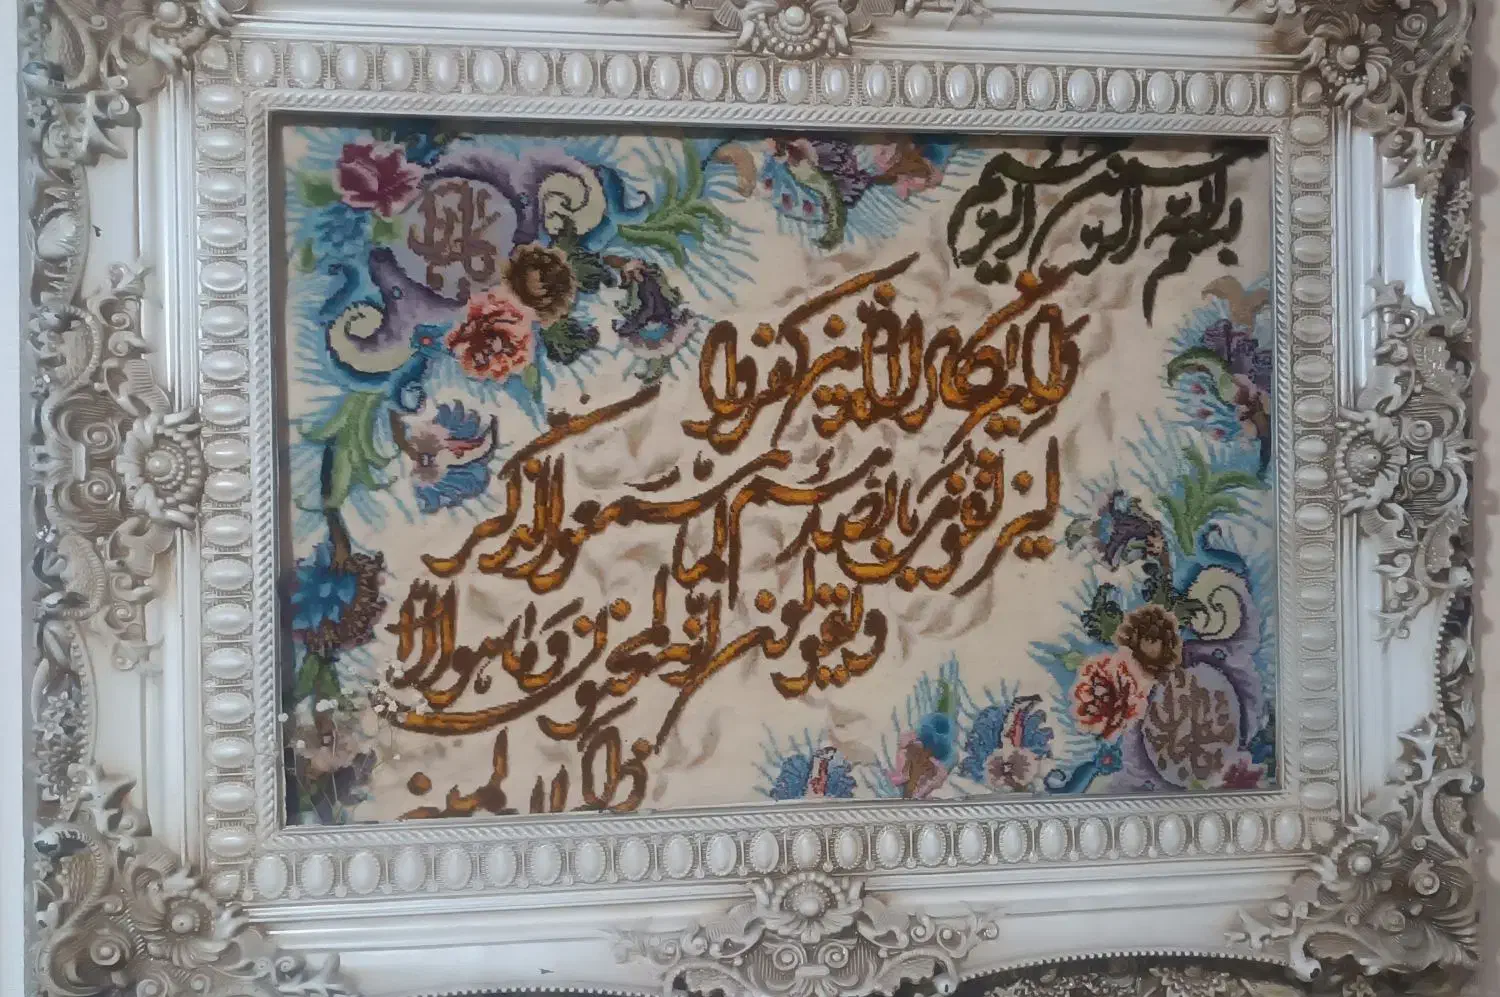 بسم الله الرحمن الرحیم
وان یکاد الذین کفروا
لیزلقونک بابصارهم لما سمعوا الذکر
و یقولون انه لمجنون و ما هو الا
ذکر للعالمین